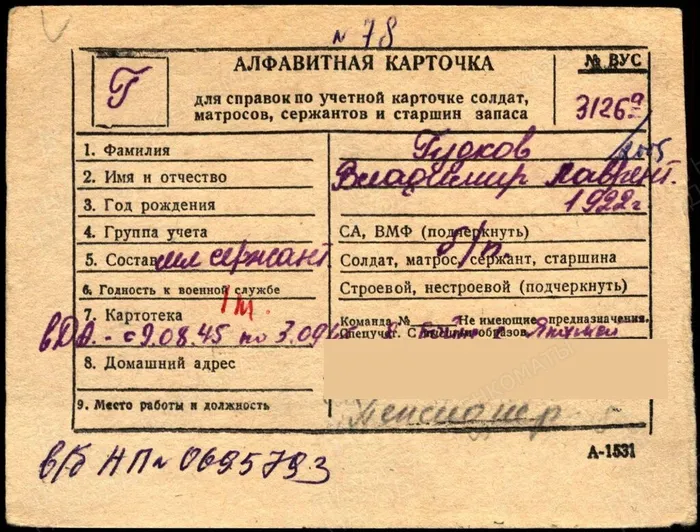 № 78
Г
АЛФАВИТНАЯ КАРТОЧКА
для справок по учетной карточке солдат,
матросов, сержантов и старшин запаса
№ ВУС
3126
1. Фамилия Гудков
2. Имя и отчество Владимир Лаврент.
3. Год рождения 1922г
4. Группа учета СА, ВМФ (подчеркнуть)
5. Состав мл сержант Солдат, матрос, сержант, старшина
6. Годность к военной службе Строевой, нестроевой (подчеркнуть)
7. Картотека Команда № Не имеющие предназначения.
Спецучет. С
с 9.08.45 по 3.09.45 Японией
8. Домашний адрес
9. Место работы и должность Пенсионер
в/б НП № 0695793
А-1531